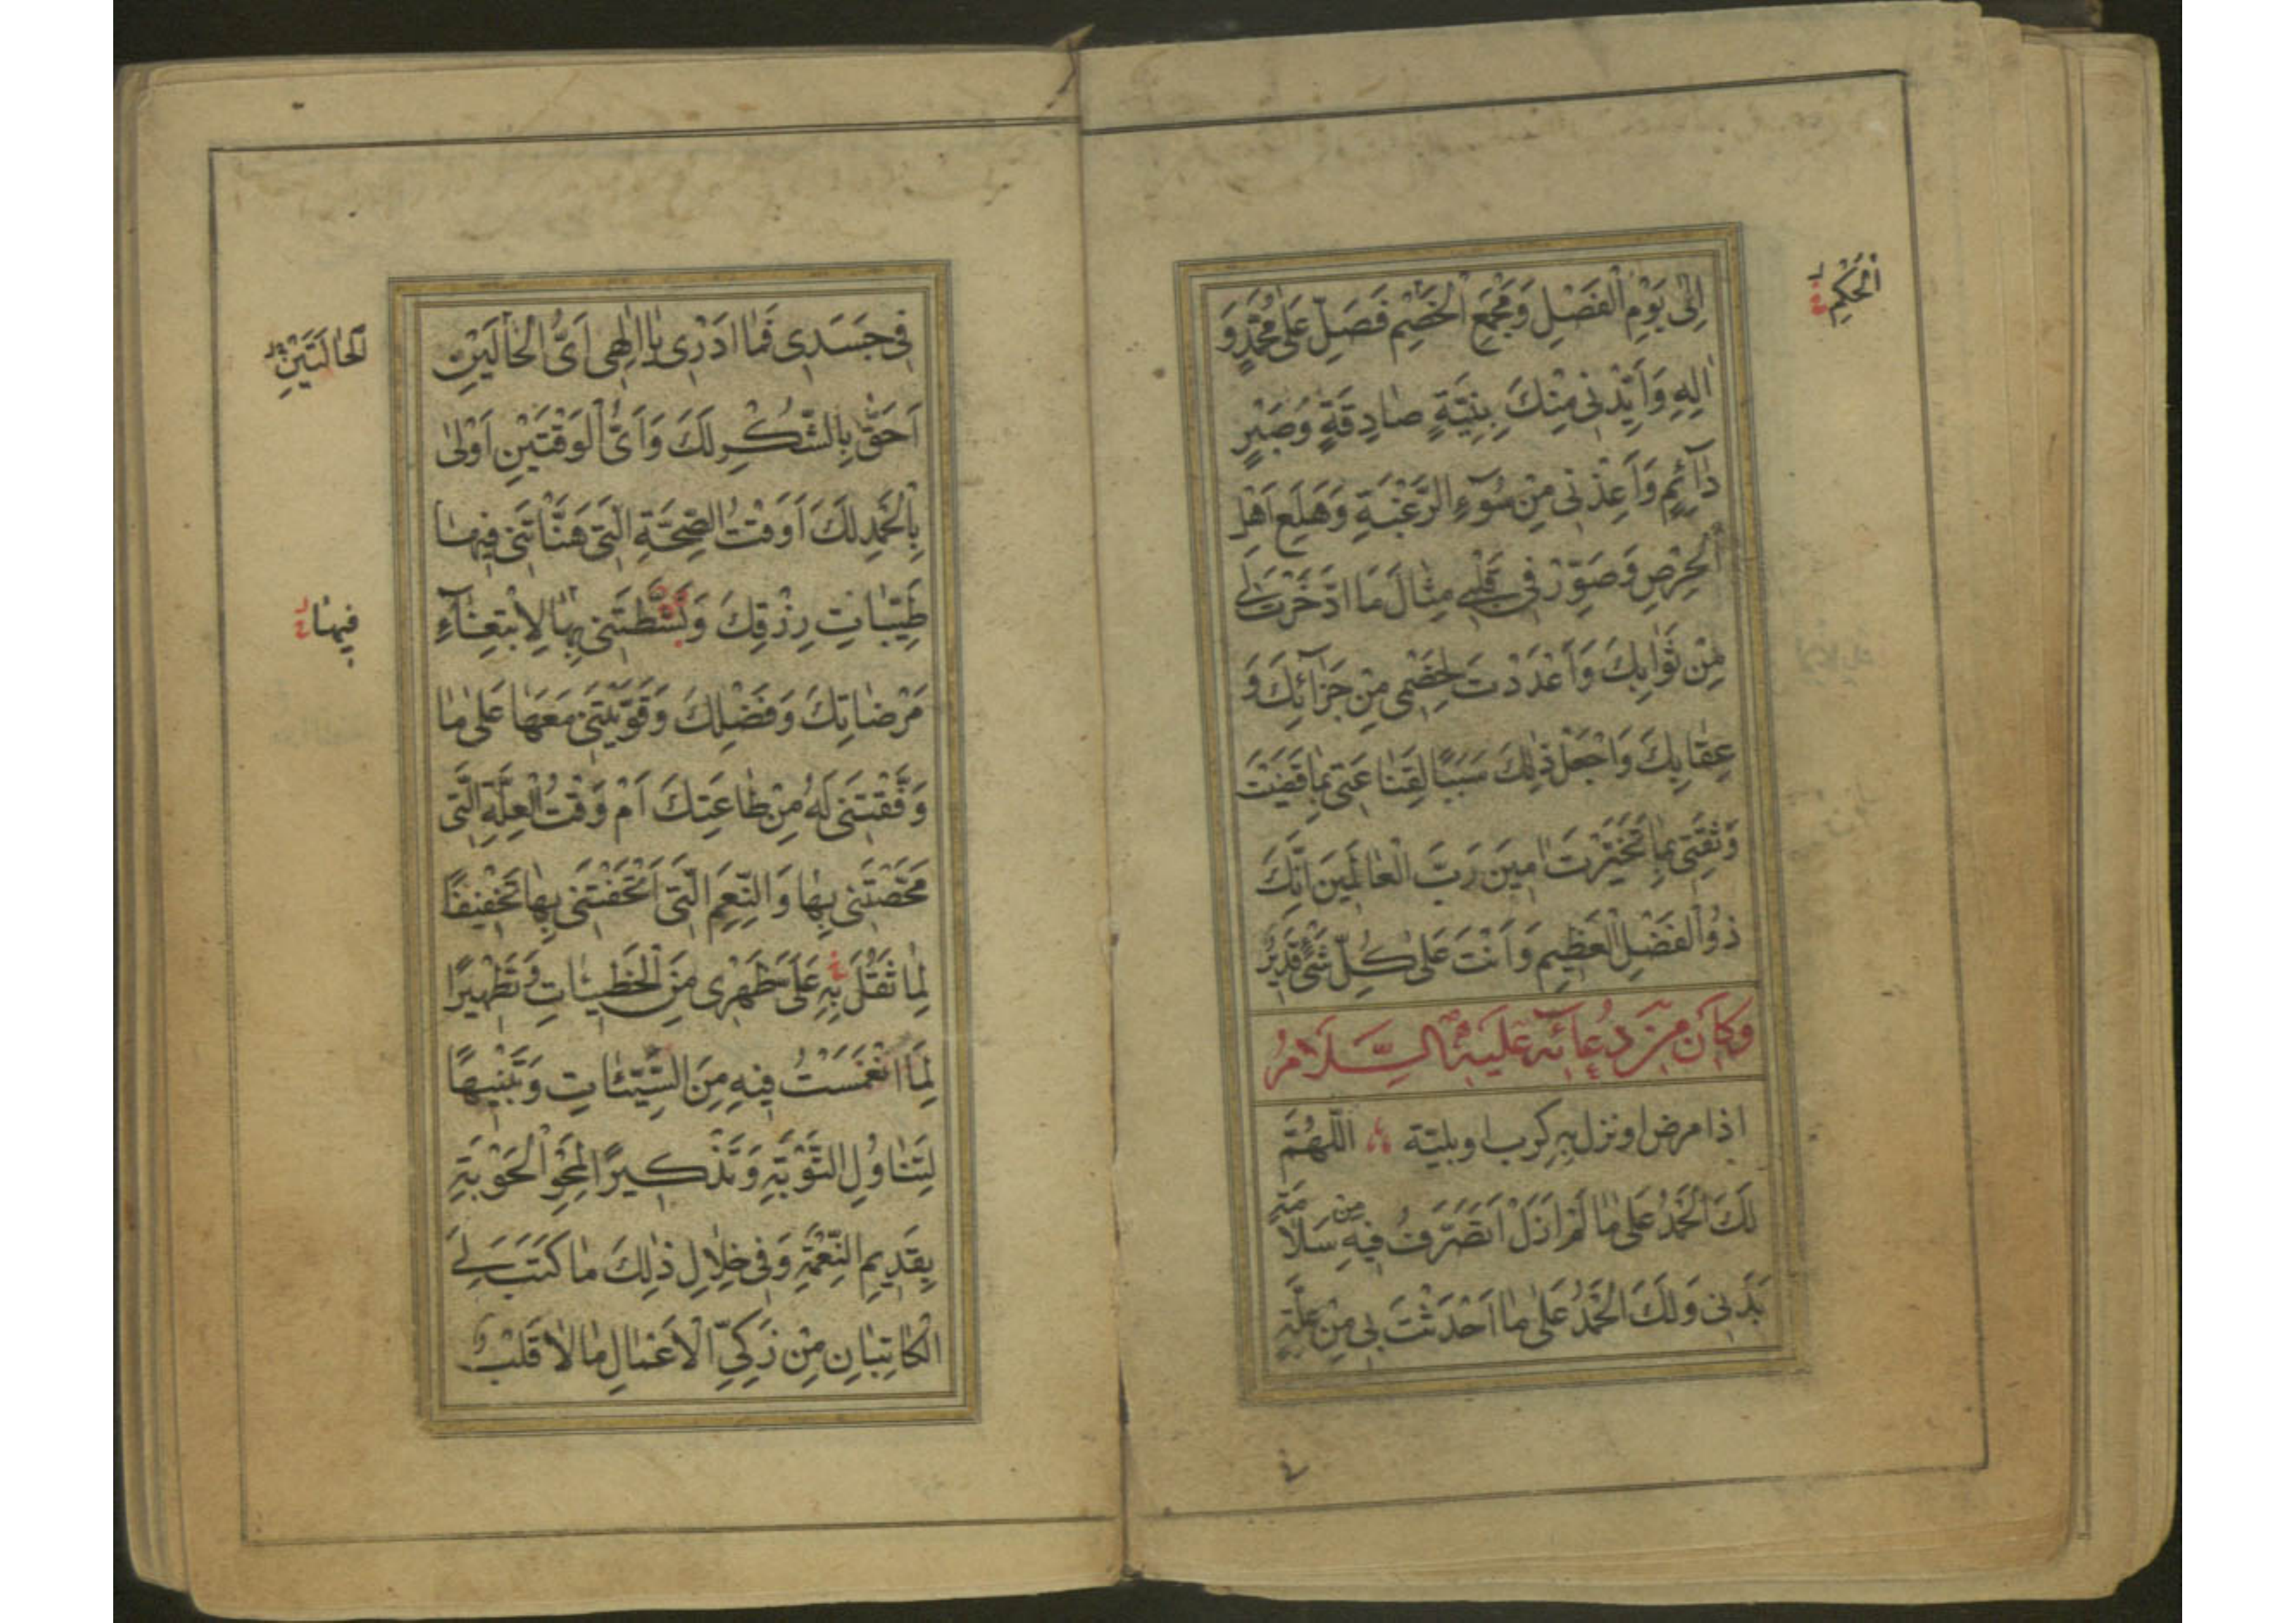 اِلىٰ يَوْمِ الْفَصْلِ وَمَجْمَعِ الْخَصْمِ فَصَلِّ عَلىٰ مُحَمَّدٍ وَ
الْحُكْمِ
اٰلِهِ وَاَيِّدْنى مِنْكَ بِنِيَّةٍ صٰادِقَةٍ وَصَبْرٍ
دٰآئِمٍ وَاَعِذْنى مِنْ سُوٓءِ الرَّغْبَةِ وَهَلَعِ اَهْلِ
الْحِرْصِ وَصَوِّرْ فى قَلْبى مِثٰالَ مَا ادَّخَرْتَ لى
مِنْ ثَوٰابِكَ وَاَعْدَدْتَ لِخَصْمى مِنْ جَزٰآئِكَ وَ
عِقٰابِكَ وَاجْعَلْ ذٰلِكَ سَبَبًا لِقَنٰاعَتى بِمٰا قَضَيْتَ
وَثِقَتى بِمٰا تَخَيَّرْتَ اٰمينَ رَبَّ الْعٰالَمينَ اِنَّكَ
ذُو الْفَضْلِ الْعَظيمِ وَاَنْتَ عَلىٰ كُلِّ شَىْءٍ قَديرٌ
وَكانَ مِنْ دُعآئِه عَلَيْهِ السَّلَامُ
اذا مرض او نزل بِهِ كرب او بليّة اَللّٰهُمَّ
لَكَ الْحَمْدُ عَلىٰ مٰا لَمْ اَزَلْ اَتَصَرَّفُ فيهِ مِن سَلٰامَةِ
بَدَنى وَلَكَ الْحَمْدُ عَلىٰ مٰا اَحْدَثْتَ بى مِنْ عِلَّةٍ
فى جَسَدى فَمٰا اَدْرى يٰا اِلٰهى اَىُّ الْحٰالَيْنِ
الْحٰالَتَيْنِ
اَحَقُّ بِالشُّكْرِ لَكَ وَاَىُّ الْوَقْتَيْنِ اَوْلىٰ
بِالْحَمْدِ لَكَ اَوَقْتُ الصِّحَّةِ الَّتى هَنَّاْتَنى فيهٰا
طَيِّبٰاتِ رِزْقِكَ وَنَشَّطْتَنى بِهٰا لِابْتِغٰآءِ
فيهٰا
مَرْضٰاتِكَ وَفَضْلِكَ وَقَوَّيْتَنى مَعَهٰا عَلىٰ مٰا
وَفَّقْتَنى لَهُ مِنْ طٰاعَتِكَ اَمْ وَقْتُ الْعِلَّةِ الَّتى
مَحَّصْتَنى بِهٰا وَالنِّعَمِ الَّتى اَتْحَفْتَنى بِهٰا تَخْفيفًا
لِمٰا ثَقُلَ بِهِ عَلَىَّ ظَهْرى مِنَ الْخَطيئٰاتِ وَتَطْهيرًا
لِمَا انْغَمَسْتُ فيهِ مِنَ السَّيِّئٰاتِ وَتَنْبيهًا
لِتَنٰاوُلِ التَّوْبَةِ وَتَذْكيرًا لِمَحْوِ الْحَوْبَةِ
بِقَديمِ النِّعْمَةِ وَفى خِلٰالِ ذٰلِكَ مٰا كَتَبَ لِىَ
الْكٰاتِبٰانِ مِنْ زَكِىِّ الْاَعْمٰالِ مٰا لٰا قَلْبٌ